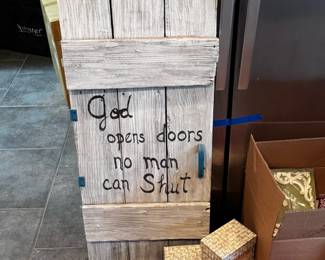 God
opens doors
no man
can Shut